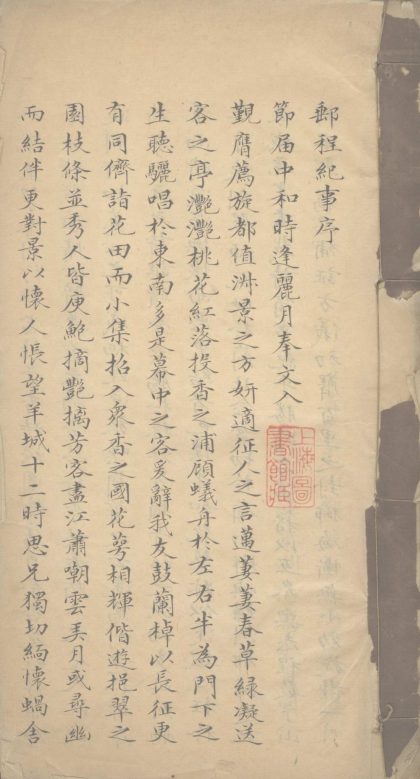 郵程紀事序
節届中和時逢麗月奉文入
覲膺薦旋都值淑景之方妍適征人之言邁萋萋春草綠凝送
客之亭灔灔桃花紅落投香之浦顧蟻舟於左右半為門下之
生聽驪唱於東南多是幕中之客爰辭我友鼓蘭棹以長征更
有同儕詣花田而小集招入衆香之國花萼相輝偕遊挹翠之
園枝條並秀人皆庾鮑摘艷摛芳客盡江蕭嘲雲美月或尋幽
而結伴更對景以懷人悵望羊城十二時思兄獨切緬懷蝸舍
上海圖書館藏